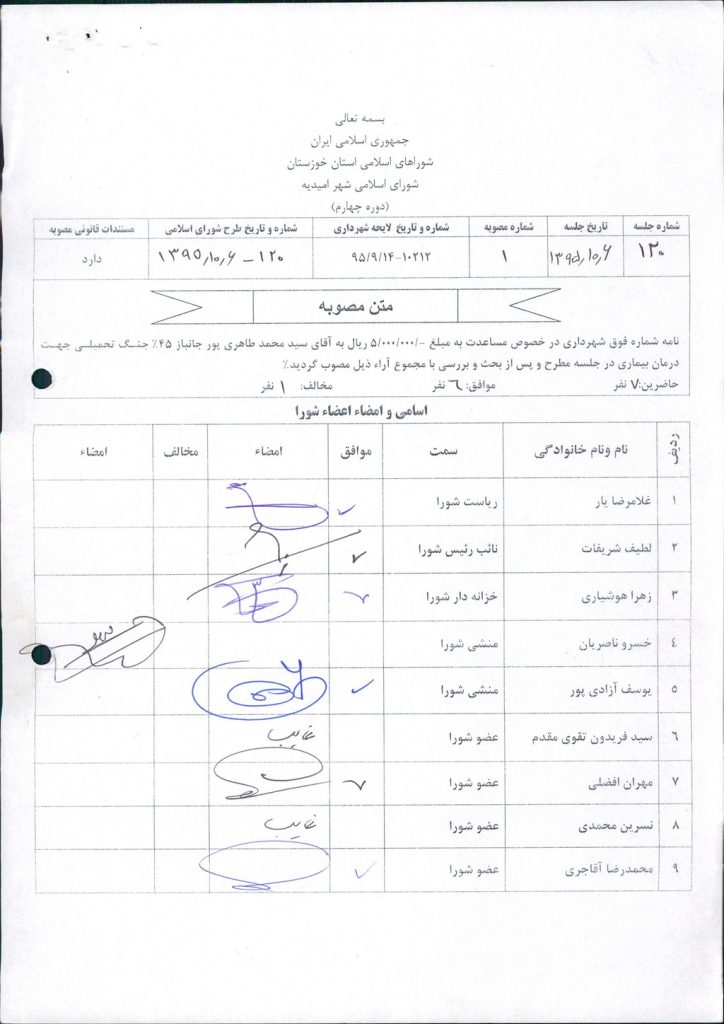 بسمه تعالی
جمهوری اسلامی ایران
شوراهای اسلامی استان خوزستان
شورای اسلامی شهر امیدیه
(دوره چهارم)
شماره جلسه تاریخ جلسه شماره مصوبه شماره و تاریخ لایحه شهرداری شماره و تاریخ طرح شورای اسلامی مستندات قانونی مصوبه
۱۲۰ ۱۳۹۵/۱۰/۶ ۱ ۹۵/۹/۱۴-۱۰۲۱۲ ۱۲۰ - ۱۳۹۵/۱۰/۶ دارد
متن مصوبه
نامه شماره فوق شهرداری در خصوص مساعدت به مبلغ -/۵/۰۰۰/۰۰۰ ریال به آقای سید محمد طاهری پور جانباز ۴۵٪ جنگ تحمیلی جهت
درمان بیماری در جلسه مطرح و پس از بحث و بررسی با مجموع آراء ذیل مصوب گردید٪
حاضرین:۷ نفر موافق: ۶ نفر مخالف: ۱ نفر
اسامی و امضاء اعضاء شورا
ردیف نام ونام خانوادگی سمت موافق امضاء مخالف امضاء
۱ غلامرضا یار ریاست شورا ✓
۲ لطیف شریفات نائب رئیس شورا ✓
۳ زهرا هوشیاری خزانه دار شورا ✓
۴ خسرو ناصریان منشی شورا
۵ یوسف آزادی پور منشی شورا ✓
۶ سید فریدون تقوی مقدم عضو شورا غایب
۷ مهران افضلی عضو شورا ✓
۸ نسرین محمدی عضو شورا غایب
۹ محمدرضا آقاجری عضو شورا ✓